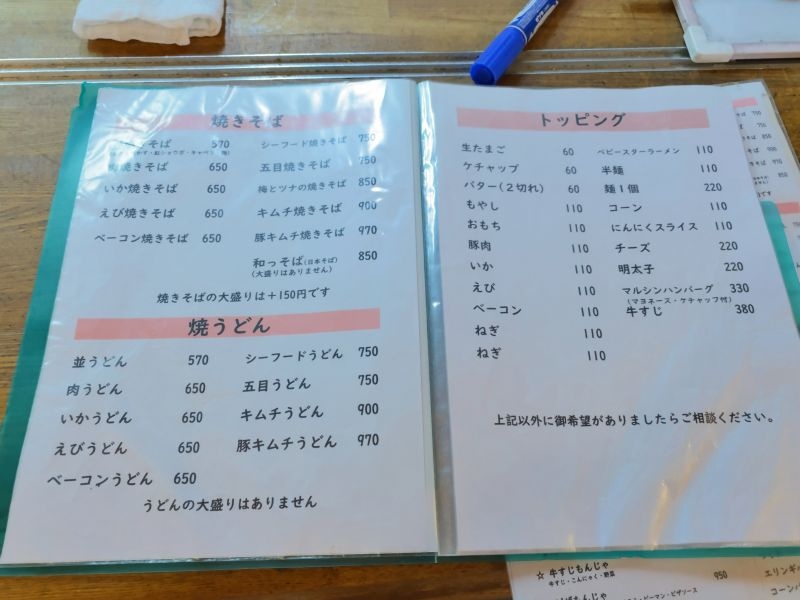 焼きそば
焼きそば 570
焼きそば 650
いか焼きそば 650
えび焼きそば 650
ベーコン焼きそば 650
シーフード焼きそば 750
五目焼きそば 750
梅とツナの焼きそば 850
キムチ焼きそば 900
豚キムチ焼きそば 970
和っそば(日本そば) 850
(大盛りはありません)
焼きそばの大盛りは＋150円です
焼うどん
並うどん 570
肉うどん 650
いかうどん 650
えびうどん 650
ベーコンうどん 650
シーフードうどん 750
五目うどん 750
キムチうどん 900
豚キムチうどん 970
うどんの大盛りはありません
トッピング
生たまご 60
ケチャップ 60
バター(2切れ) 60
もやし 110
おもち 110
豚肉 110
いか 110
えび 110
ベーコン 110
ねぎ 110
ねぎ 110
ベビースターラーメン 110
半麺 110
麺1個 220
コーン 110
にんにくスライス 110
チーズ 220
明太子 220
マルシンハンバーグ 330
(マヨネーズ・ケチャップ付)
牛すじ 380
上記以外に御希望がありましたらご相談ください。
750
750
850
900
970
850
☆ 牛すじもんじゃ 950
牛すじ・こんにゃく・野菜
エリンギ
コーン